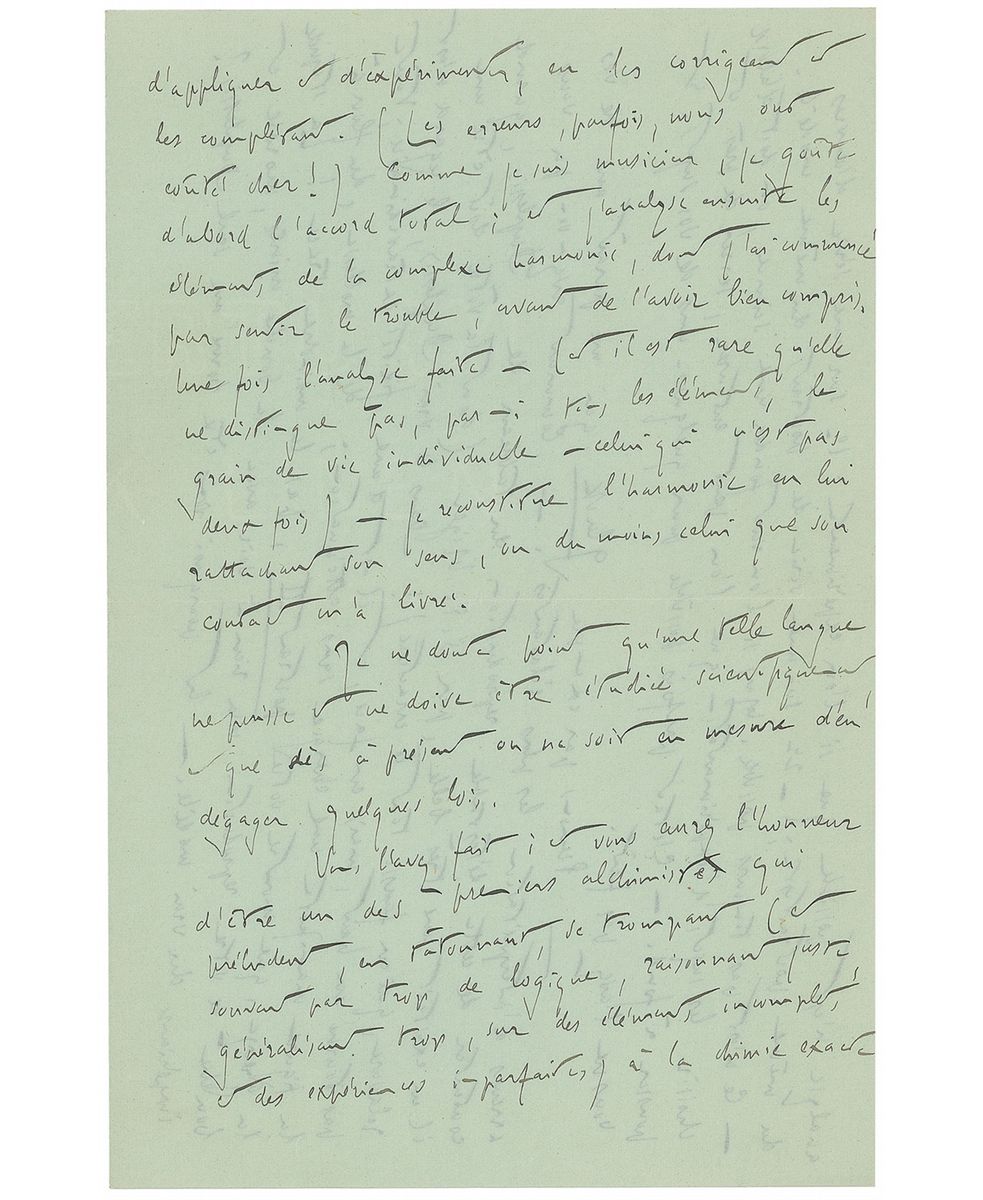 d'appliquer et d'expérimenter, en les corrigeant et
les complétant. (Les erreurs, parfois, nous ont
coûté cher!) Comme je suis musicien, je goûte
d'abord l'accord total ; et j'analyse ensuite les
éléments de la complexe harmonie, dont j'ai commencé
par sentir le trouble, avant de l'avoir bien compris.
Une fois l'analyse faite — (et il est rare qu'elle
ne distingue pas, parmi tous les éléments, le
grain de vie individuelle — celui qui n'est pas
deux fois) — je reconstitue l'harmonie en lui
rattachant son sens, ou du moins celui que son
contact m'a livré.
Je ne doute point qu'une telle langue
ne puisse et ne doive être étudiée scientifiquement
et que dès à présent on ne soit en mesure d'en
dégager quelques lois.
Vous l'avez fait ; et vous aurez l'honneur
d'être un des premiers alchimistes qui
préludent, en tâtonnant, se trompant (et
souvent par trop de logique, raisonnant juste,
généralisant trop, sur des éléments incomplets
et des expériences imparfaites) à la chimie exacte